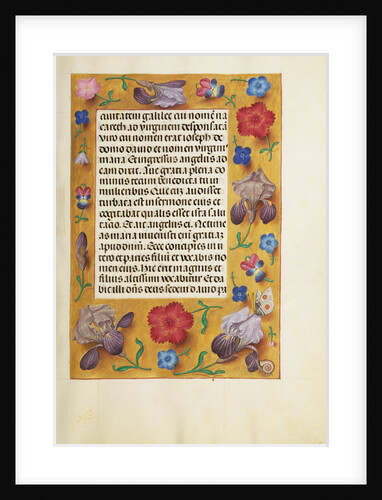 ciuitatem galilee cui nomen na
zareth. ad virginem desponsatā
viro cui nomen erat ioseph. de
domo dauid et nomen virginis
maria. Et ingressus angelus ad
eam dixit. Aue gratia plena do
minus tecum benedicta tu in
mulieribus. Que cū audisset
turbata est in sermone eius et
cogitabat qualis esset ista salu
tatio. Et ait angelus ei. Ne time
as maria inuenisti enī gratiā
apud deum. Ecce concipies in u
tero et paries filiū et vocabis no
men eius. Hic erit magnus et
filius altissimi vocabitur. Et da
bit illi dn̄s deus sedem dauid pa